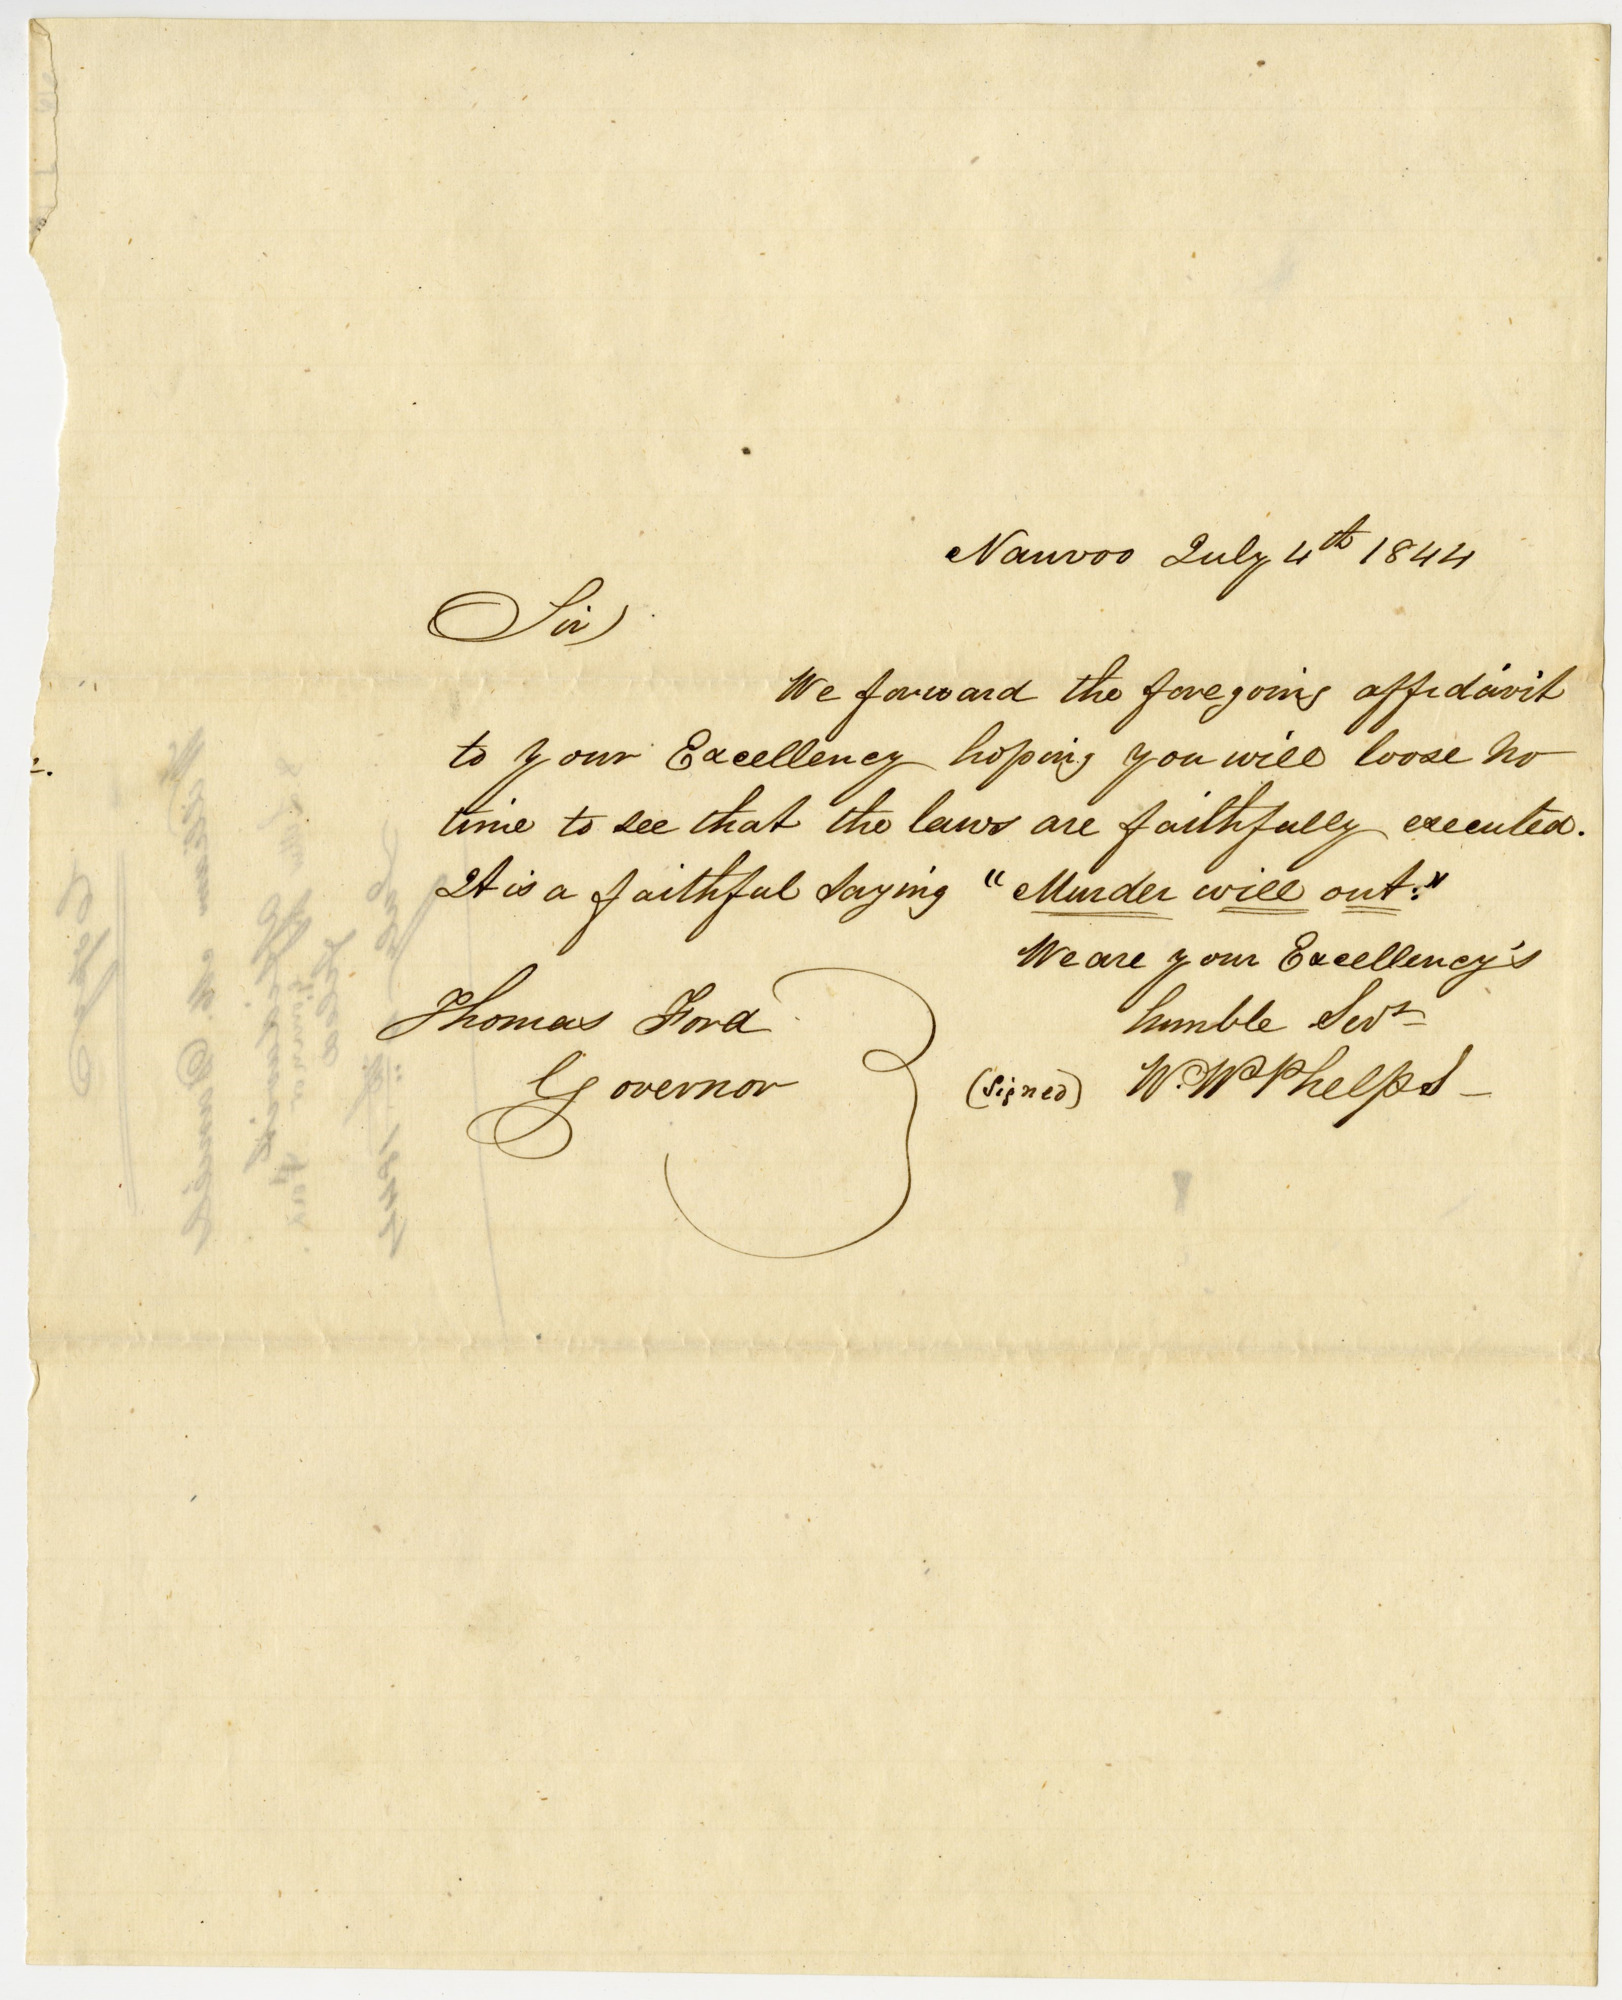 Nauvoo July 4th 1844
Sir)
We forward the foregoing affidavit
to your Excellency hoping you will loose no
time to see that the laws are faithfully executed.
It is a faithful saying "Murder will out."
We are your Excellency's
Thomas Ford humble Svts
Governor (signed) W. W Phelps —